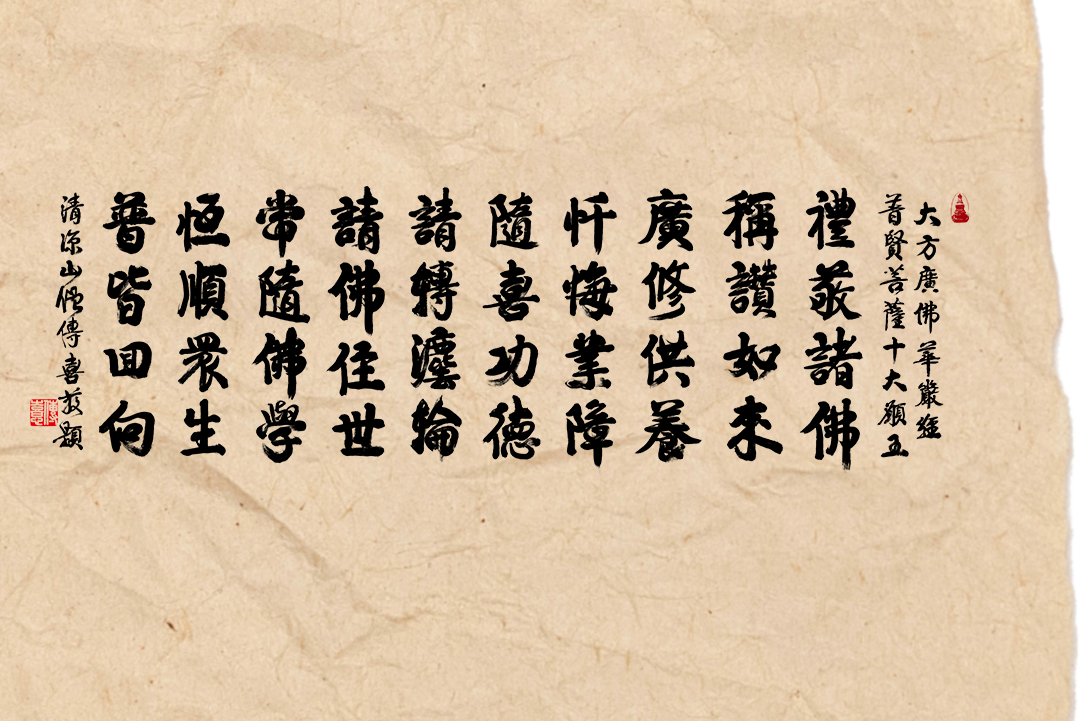 大方廣佛華嚴經
普賢菩薩十大願王
禮敬諸佛
稱讚如來
廣修供養
懺悔業障
隨喜功德
請轉法輪
請佛住世
常隨佛學
恆順眾生
普皆回向
清涼山傳喜敬題